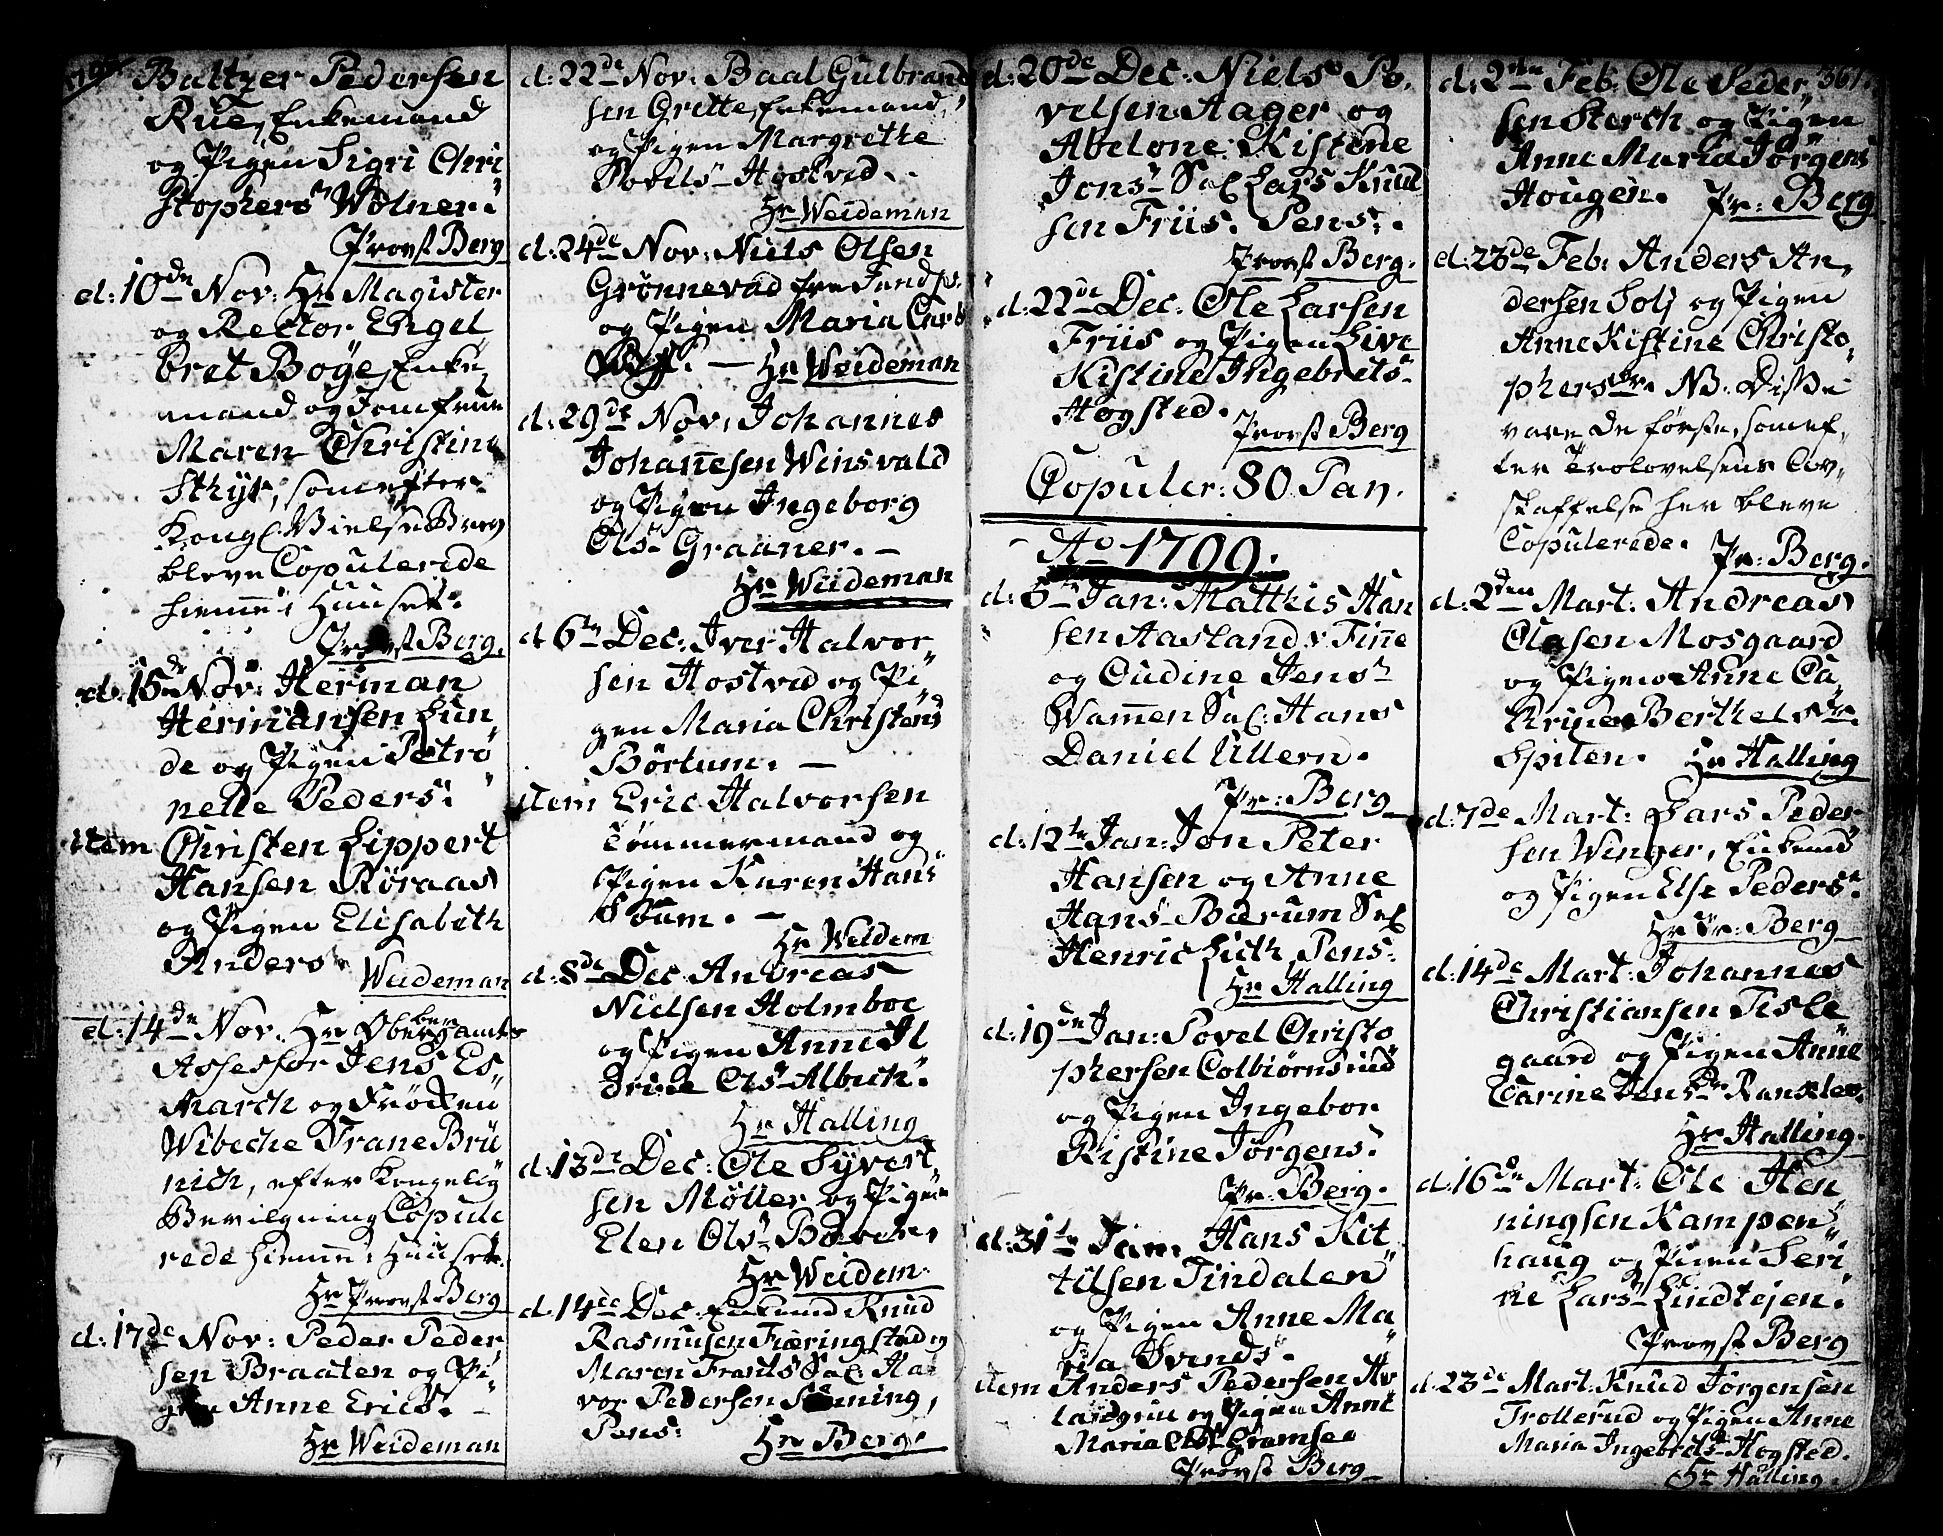 Baltzer Pedersen
Rue, Enkemand
og Pigen Sigri Chri
stophers Wølner:
Provst Berg
d: 10de Nov: Hr Magister
og Rector Engel
bret Boÿe, Enke,
mand og Jomfrue
Maren Christine
som efter
Kongl:
bleve Copulerede
hiemme i Huuset.
Provst Berg.
d: 15de Nov: Herman
Hermansen Lun
de og Pigen Petro
nelle Peders:
item Christen Lippert
Hansen Røraas
og Pigen Elisabeth
Anders
Weideman
d: 14de Nov: Hr Oberbergamts
Assessor Jens Es,
March og Frøcken
Wibeche Frane Brü
nich, efter Kongelig
Bevilgning Copule
rede hiemme i Huuset.
Hr Provst Berg
d: 17de Nov: Peder Peder,
sen Braaten og Pi,
gen Anne Erics. -
Hr Weideman
d: 22de Nov: Baal Gulbrand
sen Grette, Enkemand,
og Pigen Margrethe
Povels- Hostved.
Hr Weideman
d: 24de Nov: Niels Olsen
Grønnevad fra
og Pigen Maria
- Hr Weideman
d: 29de Nov: Johannes
Johannesen Winsvald
og Pigen Ingeborg
Ols- Graaner. -
Hr Weideman
d 6te Dec: Iver Halvor-
sen Hostved og Pi
gen Maria Christens
Børtum. -
item Eric Halvorsen
Tømmermand og
Pigen Karen Hans
-
Hr Weidem
d: 8de Dec Andreas
Nielsen Holmboe
og Pigen Anne
Ols- Albech.
Hr Halling
d: 13de Dec: Ole Syvert,
sen Møller og Pigen
Elen Ols-
Hr Weidem.
d: 14de Dec: Enkemd Knud
Rasmusen Fiæringstad og
Maren Frants Sal: Ha
vor Pedersen
Pens:
Hr Berg.
d: 20de Dec: Niels Po,
velsen Aager og
Abelone Kistine
Jons- Sal: Lars Knud
sen Friis. Pens:.
Provst Berg.
d: 22de Dec: Ole Larsen
Friis og Pigen Live
Kistine Ingebrets-
Hogsted.
Provst Berg
Copuler: 80 Par.
Ao 1799.
d: 5te Jan: Matthis Han
sen Aaslands Finne
og Gudine Jens-
Wammen Sal: Hans
Daniel Ullern.
Pr: Berg
d: 12te Jan: Jon Peter
Hansen og Anne
Hans- Bærum Sal:
Henric Lieth Pens:
Hr Halling
d: 19de Jan: Povel Christo
phersen Colbiørnsrud
og Pigen Ingebor
Kistine Jørgens.
Pr: Berg.
d: 31te Jan. Hans Kit
tilsen Tindalen
og Pigen Anne Ma
ria Svends.
item Anders Pedersen
og Pigen Anne
Maria
Provst Berg
361.
d: 2den Feb: Ole Peder
sen Storch og Pigen
Anne Maria Jørgens
Hougen. Pr: Berg
d: 23de Feb: Anders An,
dersen og Pigen
Anne Kistine Christo,
phersdr. NB. Disse
vare De første, som ef,
ter Trolovelsens Av,
skaffelse her bleve
Copulerede. Pr: Berg.
d: 2den Mart: Andreas
Olasen Mosgaard
og Pigen Anne Ca
trine Berthelsdr.
Spiten. Hr Halling
d: 7de Mart: Lars Peder
sen Winger, Enkemd
og Pigen Else Peders-
Hr Pr: Berg
d: 14de Mart: Johannes
Christiansen Tisle
gaard og Pigen Anne
Carine Jensdr
Hr Halling.
d: 16de Mart: Ole Hen
ningsen Kampen
haug og Pigen Seri
ne Lars- Lindtejen.
Provst Berg
d. 23de Mart: Knud Jørgensen
Trollerud og Pigen Anne
Maria Ingebrets- Hogsted.
Hr Halling.